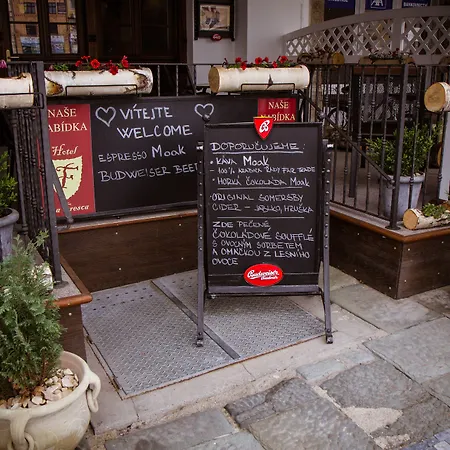 NAŠE
Hotel
VÍTEJTE
WELCOME
ESPRESSO Moak
BUDWEISER BEER
NAŠE
DOPORUČUJEME:
• KÁVA Moak
• 100% ARABICA RADY FAIR TRADE
• HORKÁ ČOKOLÁDA MOAK
• ORIGINAL SOMERSBY
CIDER - JABLKO, HRUŠKA
ZDE PEČENÉ
ČOKOLÁDOVÉ SOUFFLÉ
S OVOCNÝM SORBETEM
A OMÁČKOU Z LESNÍHO
OVOCE
Budweiser